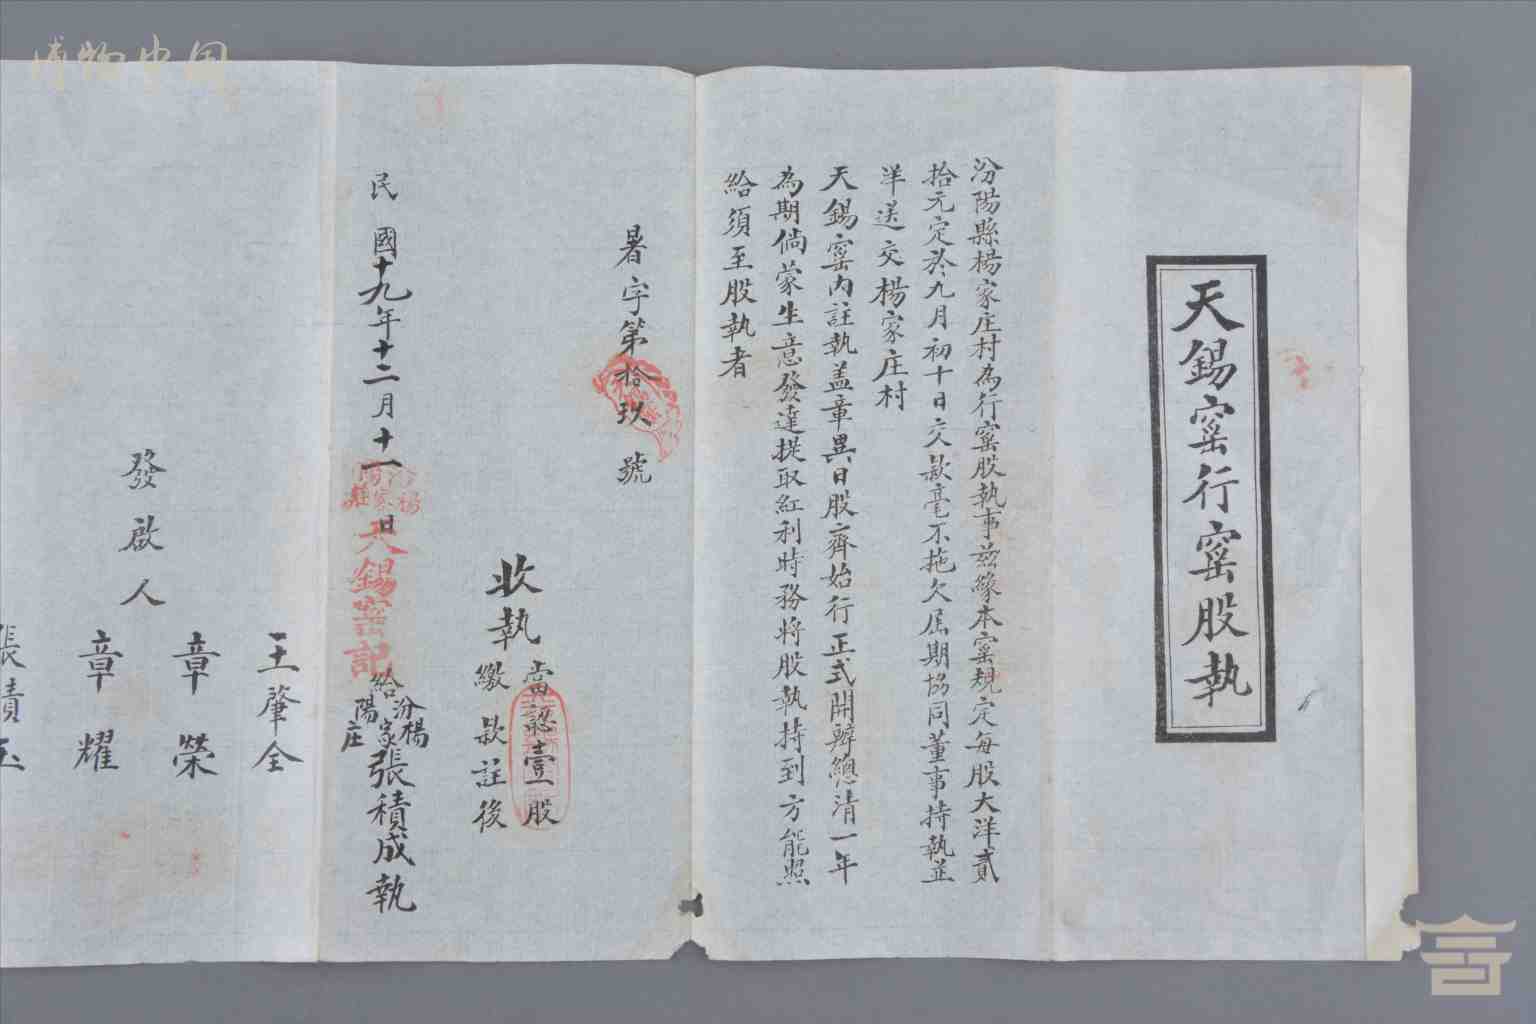 博物中国
天錫窰行窰股執
汾陽縣楊家庄村為行窰股執事茲緣本窰規定每股大洋貳
拾元定於九月初十日交款毫不拖欠屆期協同董事持執並
洋送交楊家庄村
天錫窰內註執盖章異日股齊始行正式開辦總清一年
為期倘蒙生意發達提取紅利時務將股執持到方能照
給須至股執者
暑字第拾玖號
當認壹股
繳款註後
收執
民國十九年十二月十一日
天錫窰記
給汾陽楊家庄張積成執
發啟人
王肇全
章榮
章耀
張責玉